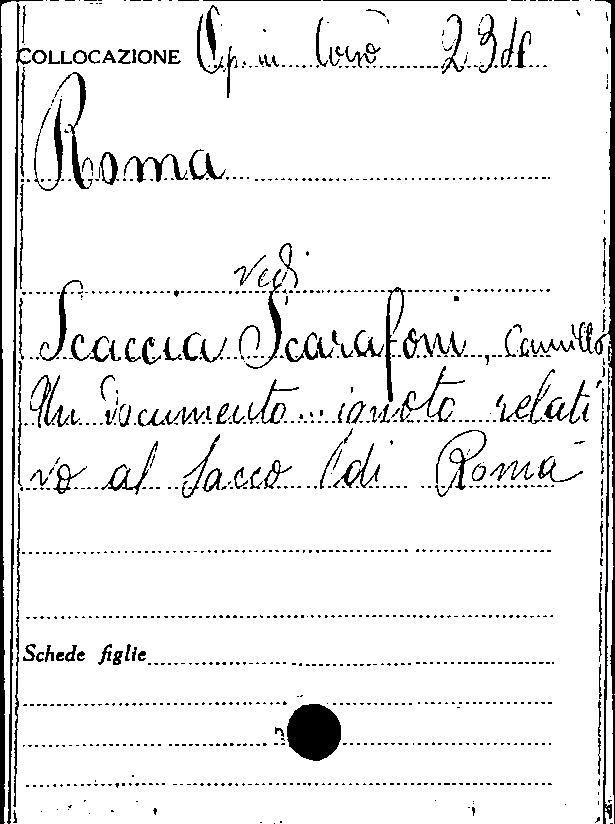 COLLOCAZIONE Op. in Corso 23
Roma
vedi
Scaccia Scarafoni, Camillo
Un documento... ignoto relati
vo al Sacco di Roma
Schede figlie